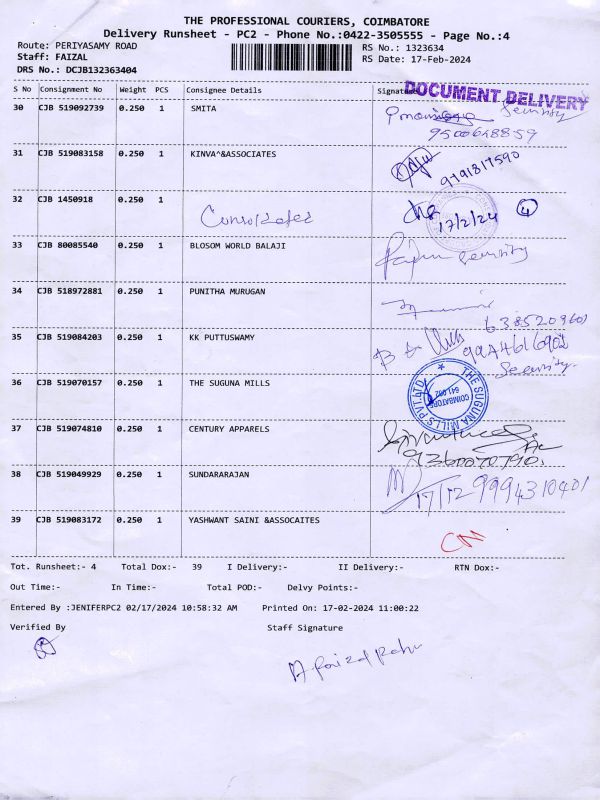 THE PROFESSIONAL COURIERS, COIMBATORE
Delivery Runsheet - PC2 - Phone No.:0422-3505555 - Page No.:4
Route: PERIYASAMY ROAD RS No.: 1323634
Staff: FAIZAL RS Date: 17-Feb-2024
DRS No.: DCJB132363404
S No Consignment No Weight PCS Consignee Details Signature
DOCUMENT DELIVERY
30 CJB 519092739 0.250 1 SMITA
Security
9500648859
31 CJB 519083158 0.250 1 KINVA^&ASSOCIATES
9791817590
32 CJB 1450918 0.250 1
17/2/24 4
33 CJB 80085540 0.250 1 BLOSOM WORLD BALAJI
Security
34 CJB 518972881 0.250 1 PUNITHA MURUGAN
6385209601
35 CJB 519084203 0.250 1 KK PUTTUSWAMY
9944616902
Security
36 CJB 519070157 0.250 1 THE SUGUNA MILLS
THE SUGUNA MILLS PVT LTD
COIMBATORE
641 002
37 CJB 519074810 0.250 1 CENTURY APPARELS
9360070790
38 CJB 519049929 0.250 1 SUNDARARAJAN
17/12 9994310401
39 CJB 519083172 0.250 1 YASHWANT SAINI &ASSOCAITES
CNI
Tot. Runsheet:- 4 Total Dox:- 39 I Delivery:- II Delivery:- RTN Dox:-
Out Time:- In Time:- Total POD:- Delvy Points:-
Entered By :JENIFERPC2 02/17/2024 10:58:32 AM Printed On: 17-02-2024 11:00:22
Verified By Staff Signature